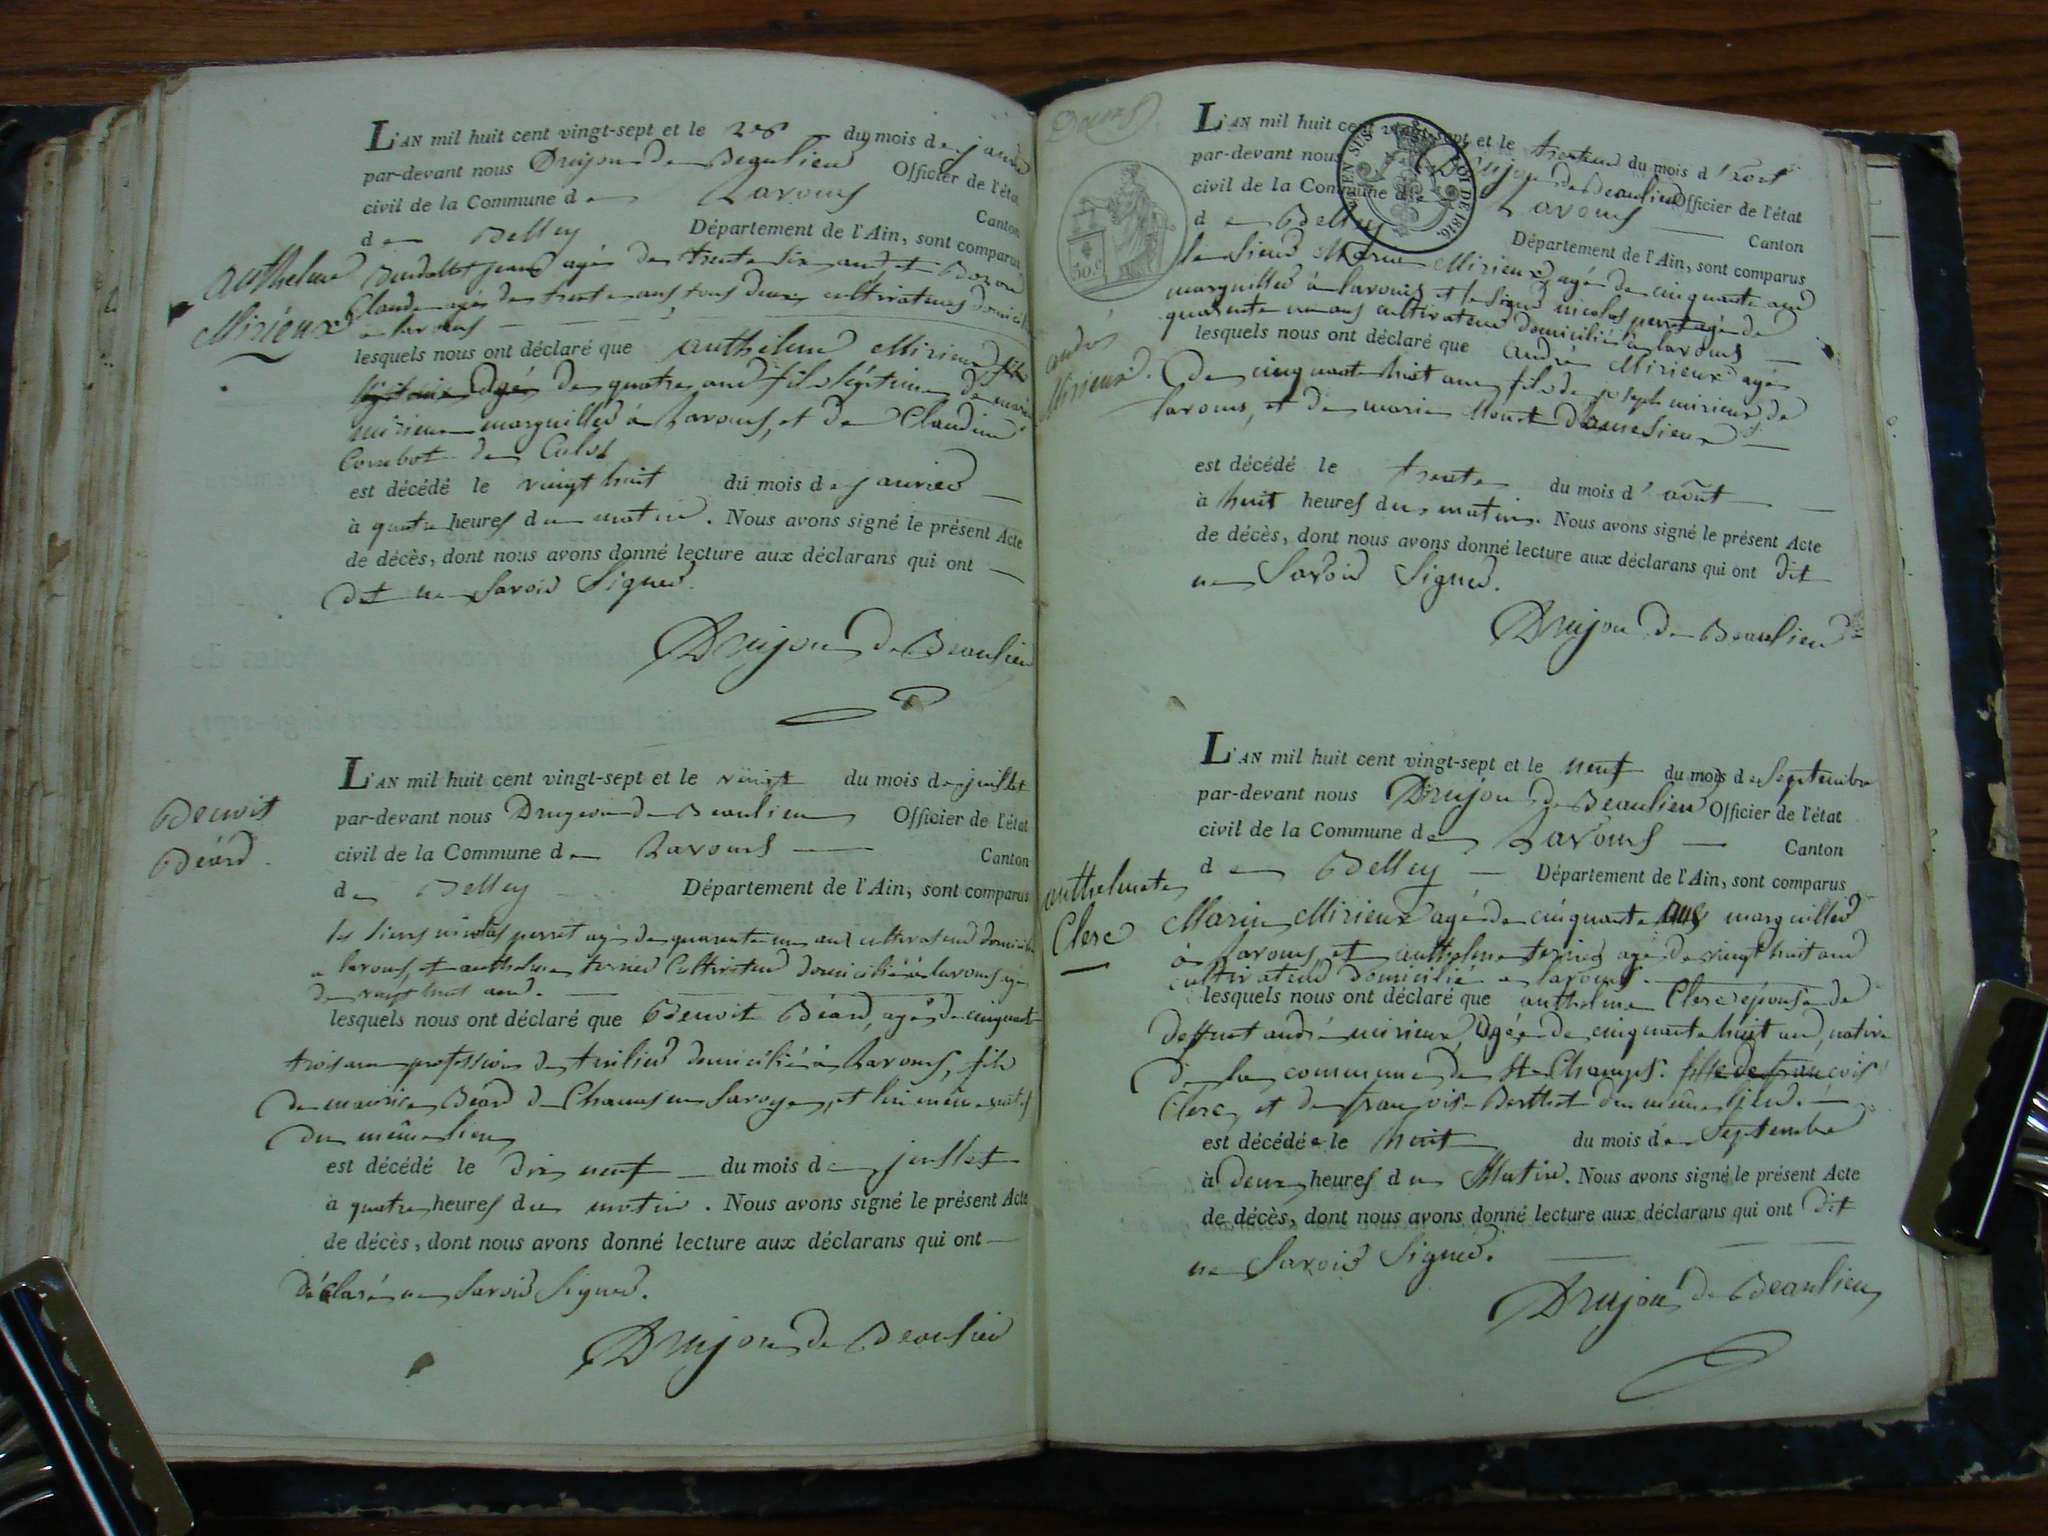 L'AN mil huit cent vingt-sept et le 28 du mois de janvier
par-devant nous Drujon de Beaulieu Officier de l'état
civil de la Commune de Lavours Canton
de Belley Département de l'Ain, sont comparus
anthelme
Mirieux
jean agé de trente six ans et Bozon
Claude agé de trente ans tous deux cultivateurs
a lavours
lesquels nous ont déclaré que anthelme Mirieux fils
agé de quatre ans fils légitime de marin
mirieux marguillier à Lavours, et de Claudine
Combot de Culoz
est décédé le vingt huit du mois de janvier
à quatre heures du matin. Nous avons signé le présent Acte
de décès, dont nous avons donné lecture aux déclarans qui ont
dit ne Savoir Signer.
Drujon de Beaulieu
Benoit
Béard
L'AN mil huit cent vingt-sept et le vingt du mois de juillet
par-devant nous Drujeon de Beaulieu Officier de l'état
civil de la Commune de Lavours Canton
de Belley Département de l'Ain, sont comparus
les sieurs nicolas perret agé de quarente un ans cultivateur domicilié
a lavours, et anthelme ternier Cultivateur domicilié à lavours agé
de vingt huit ans.
lesquels nous ont déclaré que Benoit Béard, agé de cinquante
trois ans profession de tuilier domicilié à Lavours, fils
de maurice Béard de Chanas en Savoye, et lui même natif
du même lieu
est décédé le dix neuf du mois de juillet
à quatre heures du matin. Nous avons signé le présent Acte
de décès, dont nous avons donné lecture aux déclarans qui ont
déclaré ne Savoir Signer.
Drujon de Beaulieu
30.c
EN SUS
LOI DE 1816.
L'AN mil huit cent vingt-sept et le trente du mois d'août
par-devant nous Drujon de Beaulieu Officier de l'état
civil de la Commune de Lavours Canton
de Belley Département de l'Ain, sont comparus
andré
Mirieux.
le Sieur Marin Mirieux agé de cinquante ans
marguillier à lavours et le Sieur nicolas perret agé de
quarente un ans cultivateur domicilié à lavours
lesquels nous ont déclaré que andré Mirieux agé
de cinquante huit ans fils de joseph mirieux de
lavours, et de marie
est décédé le trente du mois d'août
à huit heures du matin. Nous avons signé le présent Acte
de décès, dont nous avons donné lecture aux déclarans qui ont dit
ne Savoir Signer.
Drujon de Beaulieu
L'AN mil huit cent vingt-sept et le neuf du mois de Septembre
par-devant nous Drujon de Beaulieu Officier de l'état
civil de la Commune de Lavours Canton
de Belley Département de l'Ain, sont comparus
anthelmete
Clerc
Marin Mirieux agé de cinquante ans marguillier
à Lavours, et anthelme ternier agé de vingt huit ans
cultivateur domicilié a lavours.
lesquels nous ont déclaré que anthelme Clerc épouse de
deffunt andré mirieux, agée de cinquante huit ans, native
de la commune de St Champs. fille de françois
Clerc, et de françoise Berthet du même lieu.
est décédée le huit du mois de Septembre
à deux heures du Matin. Nous avons signé le présent Acte
de décès, dont nous avons donné lecture aux déclarans qui ont dit
ne Savoir Signer.
Drujon de Beaulieu